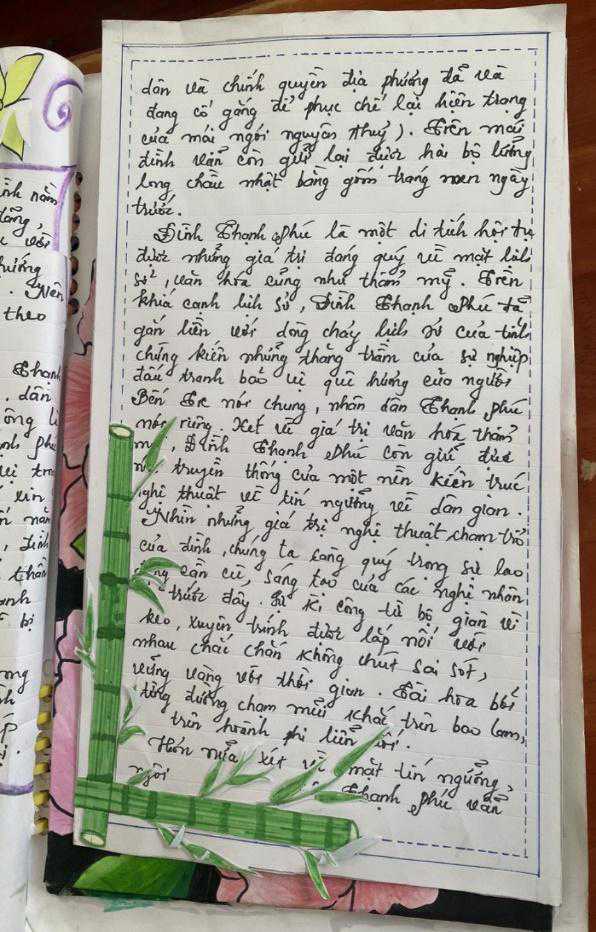 dân và chính quyền địa phương đã và
đang cố gắng để phục chế lại hiện trạng
của mái ngói nguyên thuỷ). Trên mái
đình vẫn còn giữ lại được hai bộ lưỡng
long chầu nhật bằng gốm tráng men ngày
trước.
Đình Thạnh Phú là một di tích hội tụ
được những giá trị đáng quý về mặt lịch
sử, văn hóa cũng như thẩm mỹ. Trên
khía cạnh lịch sử, Đình Thạnh Phú đã
gắn liền với dòng chảy lịch sử của tỉnh
chứng kiến những thăng trầm của sự nghiệp
đấu tranh bảo vệ quê hương của người
Bến Tre nói chung, nhân dân Thạnh Phú
nói riêng. Xét về giá trị văn hóa thẩm
Đình Thạnh Phú còn giữ được
truyền thống của một nền kiến trúc
nghệ thuật về tín ngưỡng về dân gian.
Nhìn những giá trị nghệ thuật chạm trổ
của đình, chúng ta càng quý trọng sự lao
cần cù, sáng tạo của các nghệ nhân
trước đây. Sự kì công từ bộ giàn vì
kèo, xuyên trính được lắp nối với
nhau chắc chắn không chút sai sót,
vững vàng với thời gian. Tài hoa bởi
từng đường chạm miếu khắc trên bao lam,
trên hoành phi liễn đối.
Hơn nữa, xét về mặt tín ngưỡng,
ngôi Thạnh Phú vẫn
Nên
theo
Thạnh
dân